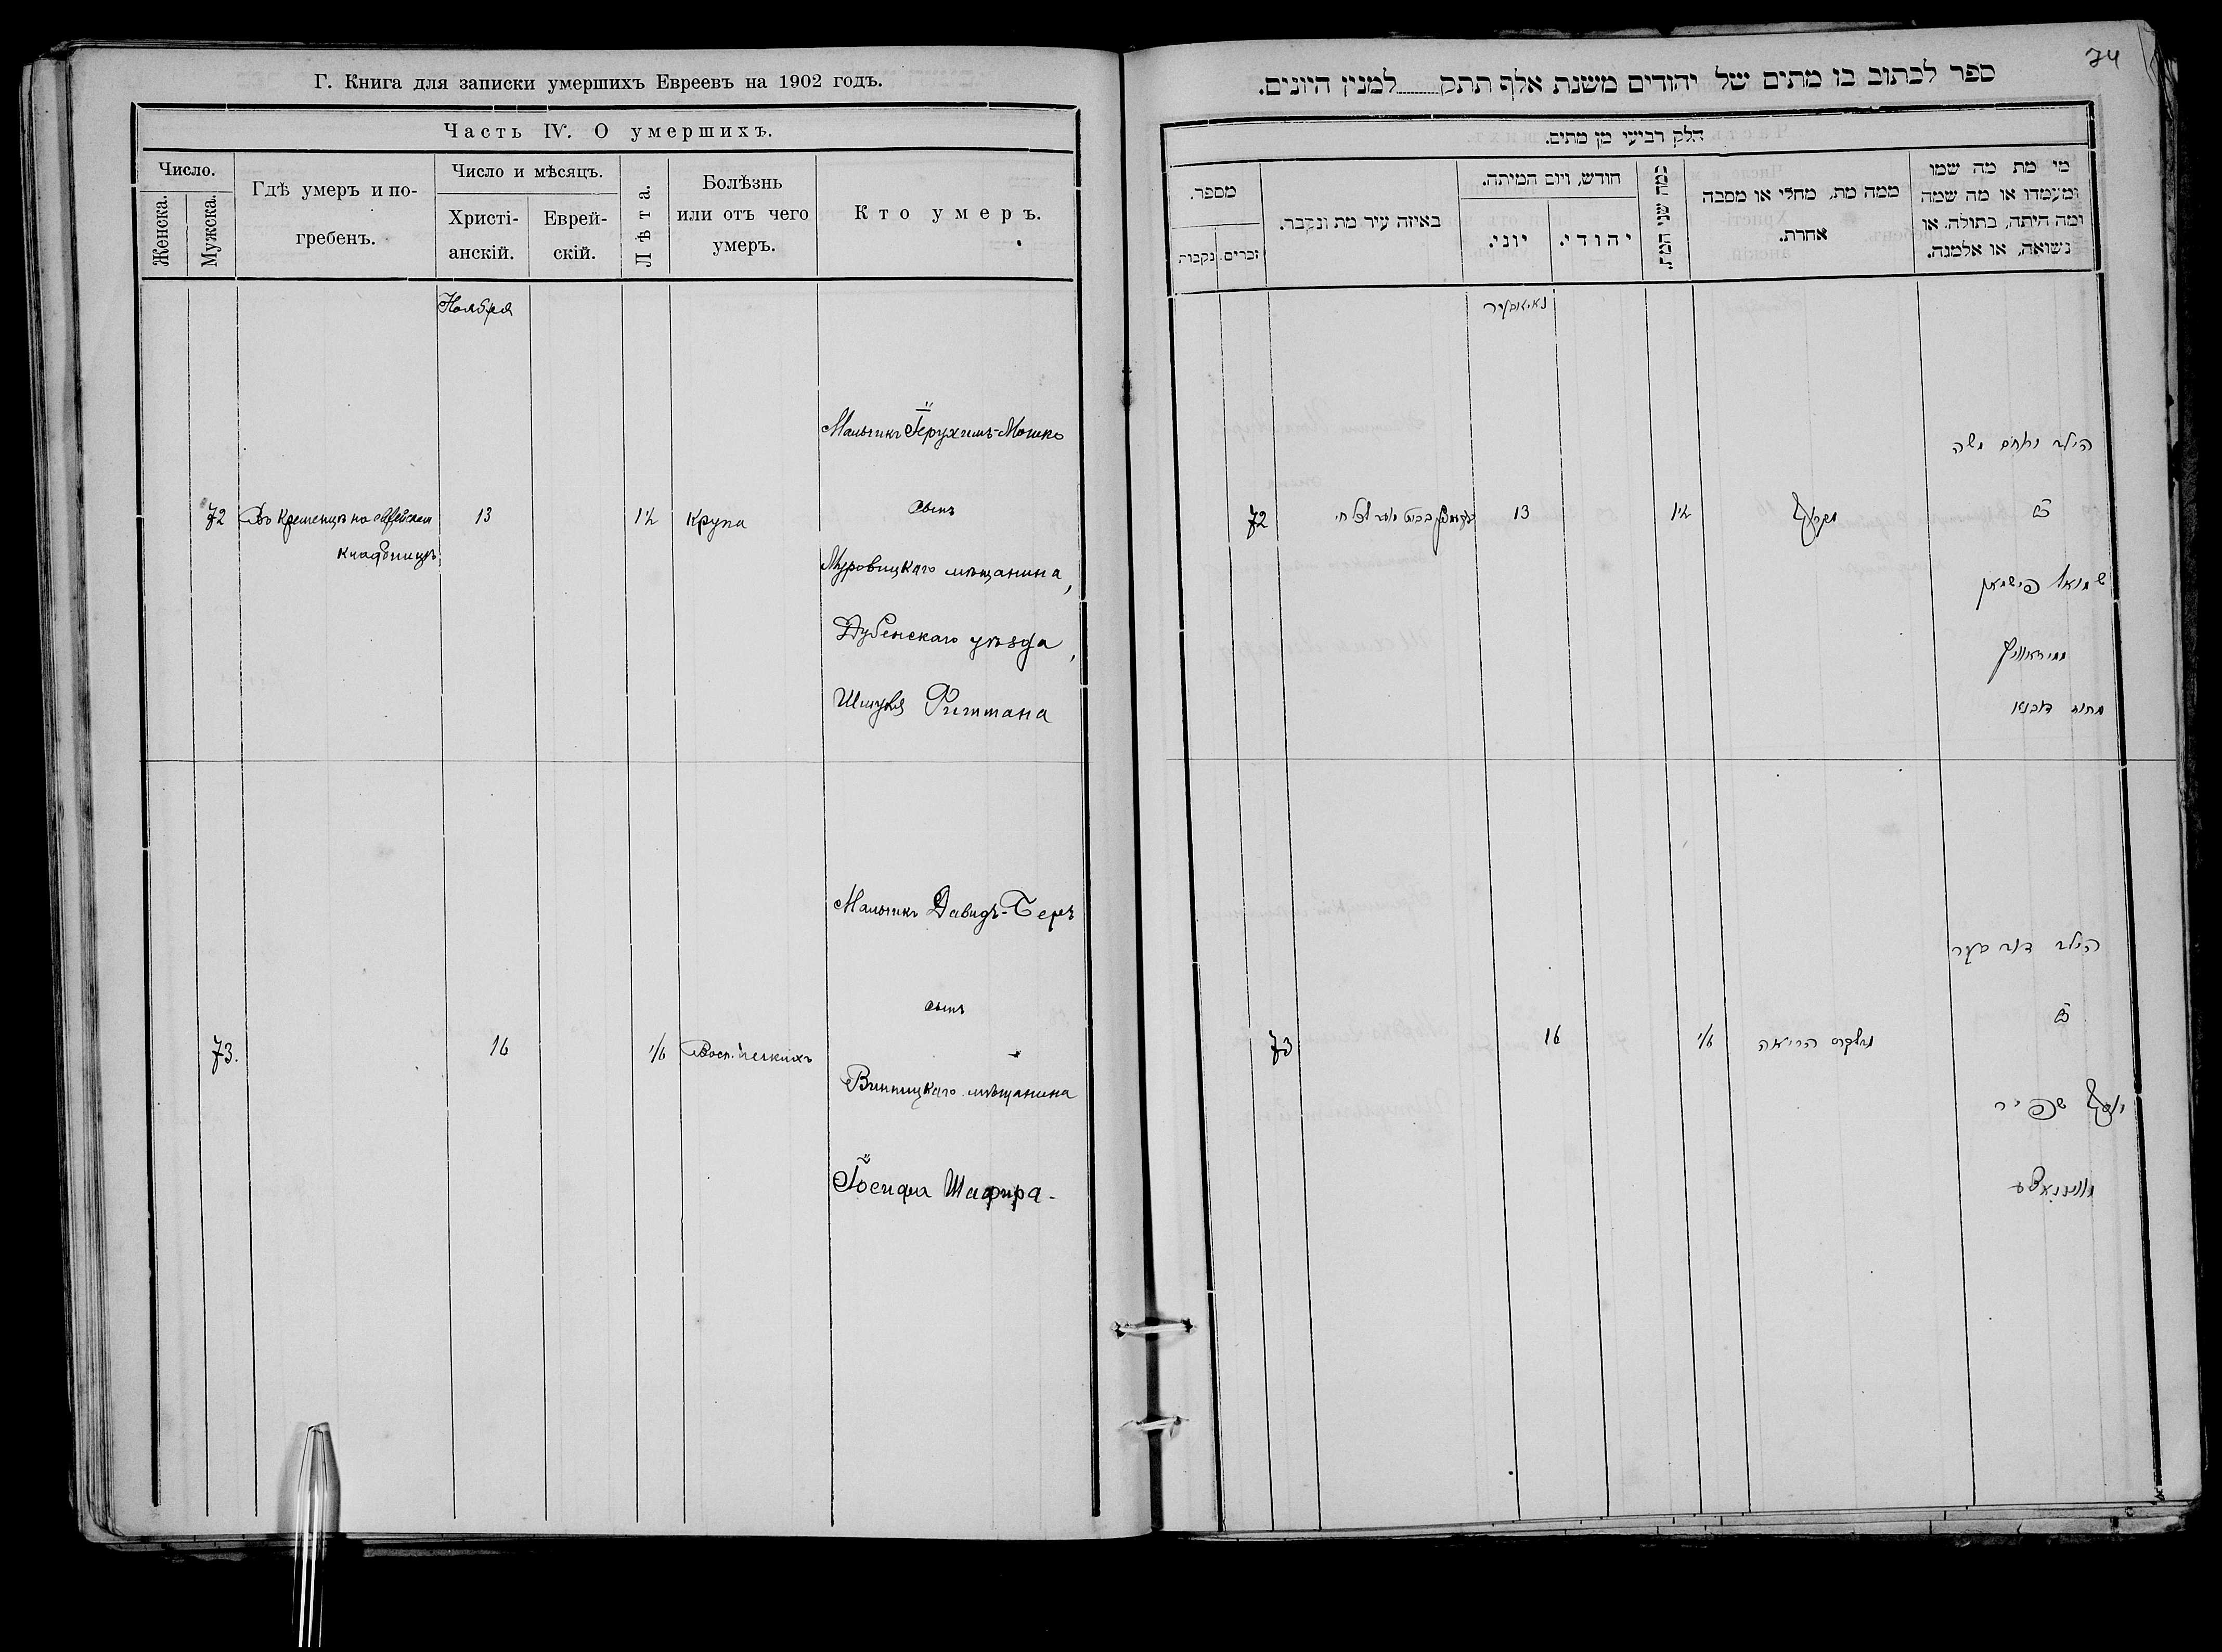 Г. Книга для записки умершихъ Евреевъ на 1902 годъ.
Часть IV. О умершихъ.
Число.
Женска.
Мужска.
Гдѣ умеръ и по-
гребенъ.
Число и мѣсяцъ.
Христі-
анскій.
Еврей-
скій.
Лѣта.
Болѣзнь
или отъ чего
умеръ.
Кто умеръ.
Ноября
Мальчикъ Іерухимъ-Мошко
72 Въ Кременцѣ на еврейском 13 1½ Крупа сынъ
кладбищѣ
Муровицкаго мѣщанина,
Дубенскаго уѣзда,
Шмуля Фиштана
Мальчикъ Давидъ-Беръ
сынъ
73. 16 1/6 Восп. легкихъ
Винницкаго мѣщанина
Іосифа Шафира-
74
ספר לכתוב בו מתים של יהודים משנת אלף תתק למנין היונים.
חלק רביעי מן מתים.
מי מת מה שמו
ומעמדו או מה שמה
ומה היתה, בתולה, או
נשואה, או אלמנה.
ממה מת, מחלי או מסבה
אחרת.
כמה שני המת.
חודש, ויום המיתה.
יהודי.
יוני.
באיזה עיר מת ונקבר.
מספר.
זכרים.
נקבות
נאיאבער
הילד ירוחם משה
ב"ר
72 13 1½
שמואל פישמאן
מוראוויץ
מחוז דובנא
הילד דוד בער
ב"ר
73 16 1/6 הריאה
יוסף שפיר